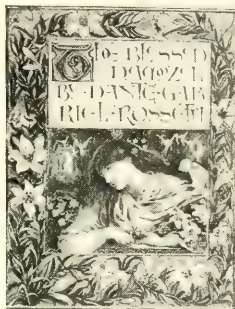 THE BLESSED
DAMOZEL
BY DANTE GAB
RIEL ROSSETTI